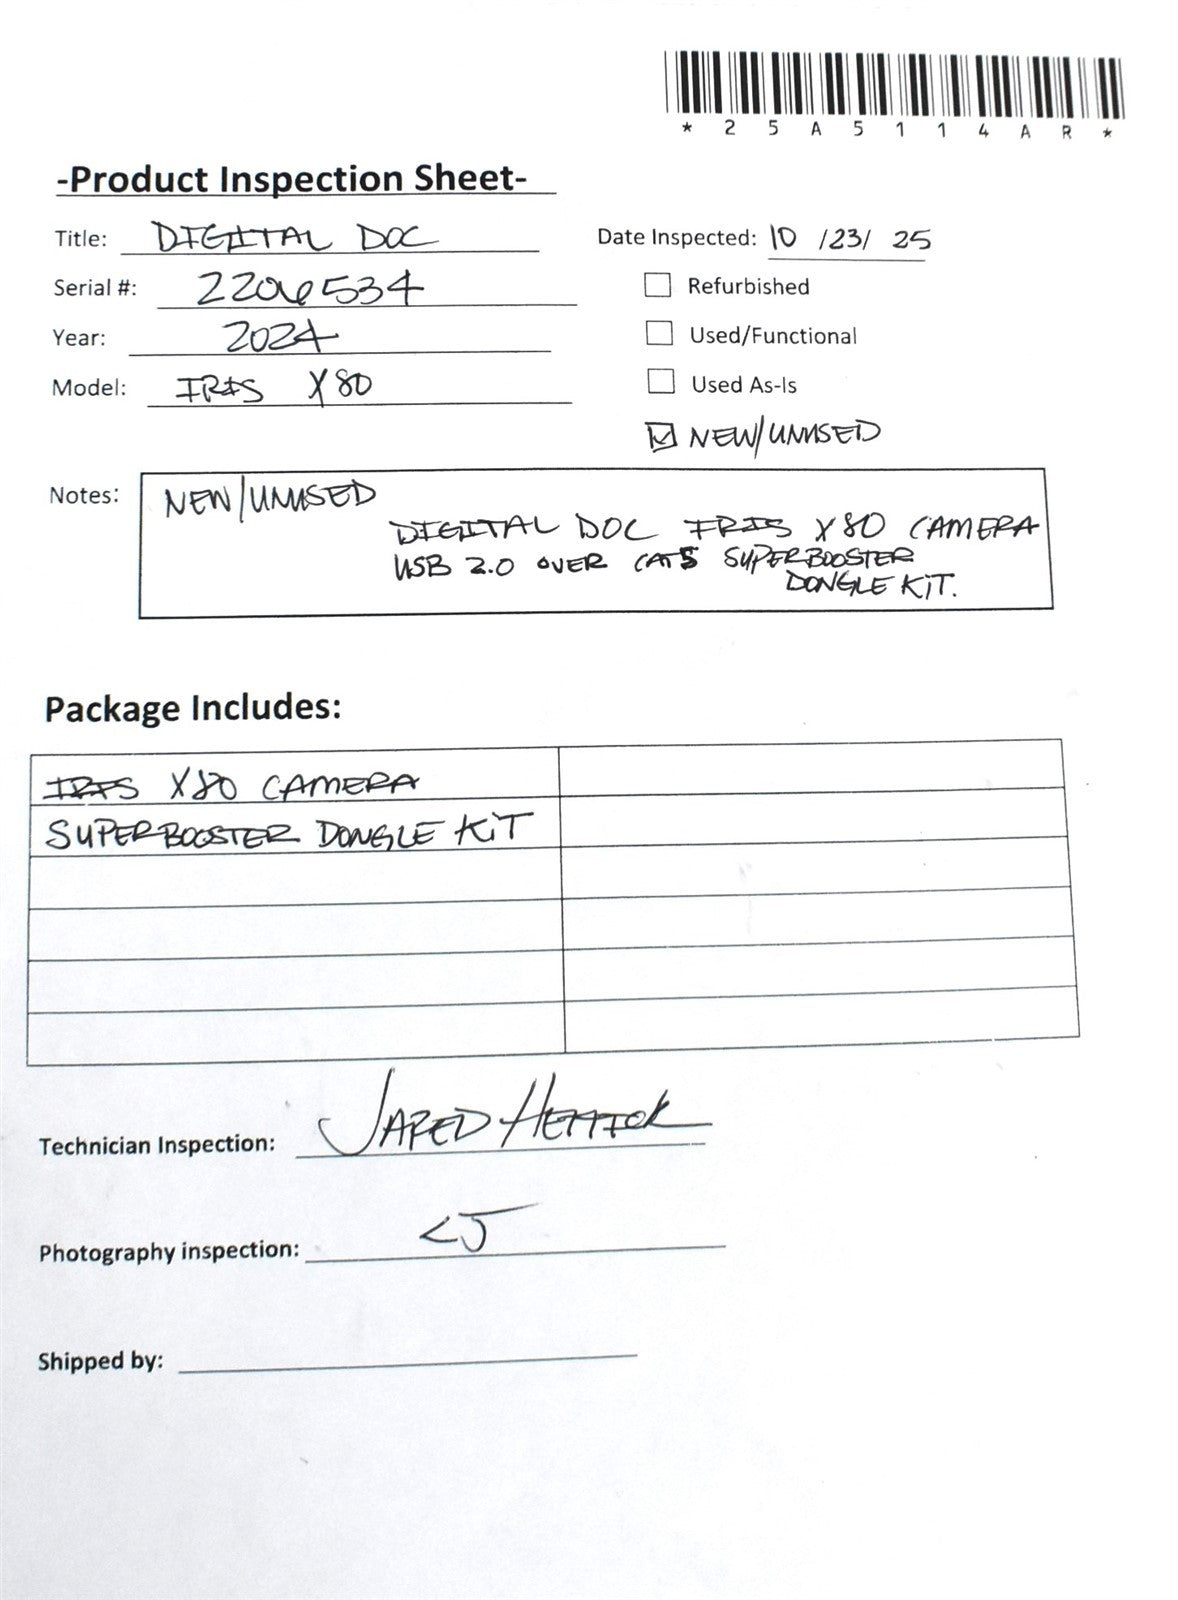 *25A5114AR*
-Product Inspection Sheet-
Title: DIGITAL DOC
Date Inspected: 10 /23/ 25
Serial #: 2206534
Refurbished
Year: 2024
Used/Functional
Model: IRIS X80
Used As-Is
NEW/UNUSED
Notes: NEW/UNUSED
DIGITAL DOC IRIS X80 CAMERA
USB 2.0 OVER CAT5 SUPERBOOSTER
DONGLE KIT.
Package Includes:
IRIS X80 CAMERA
SUPERBOOSTER DONGLE KIT
Technician Inspection: JARED
Photography inspection:
Shipped by: